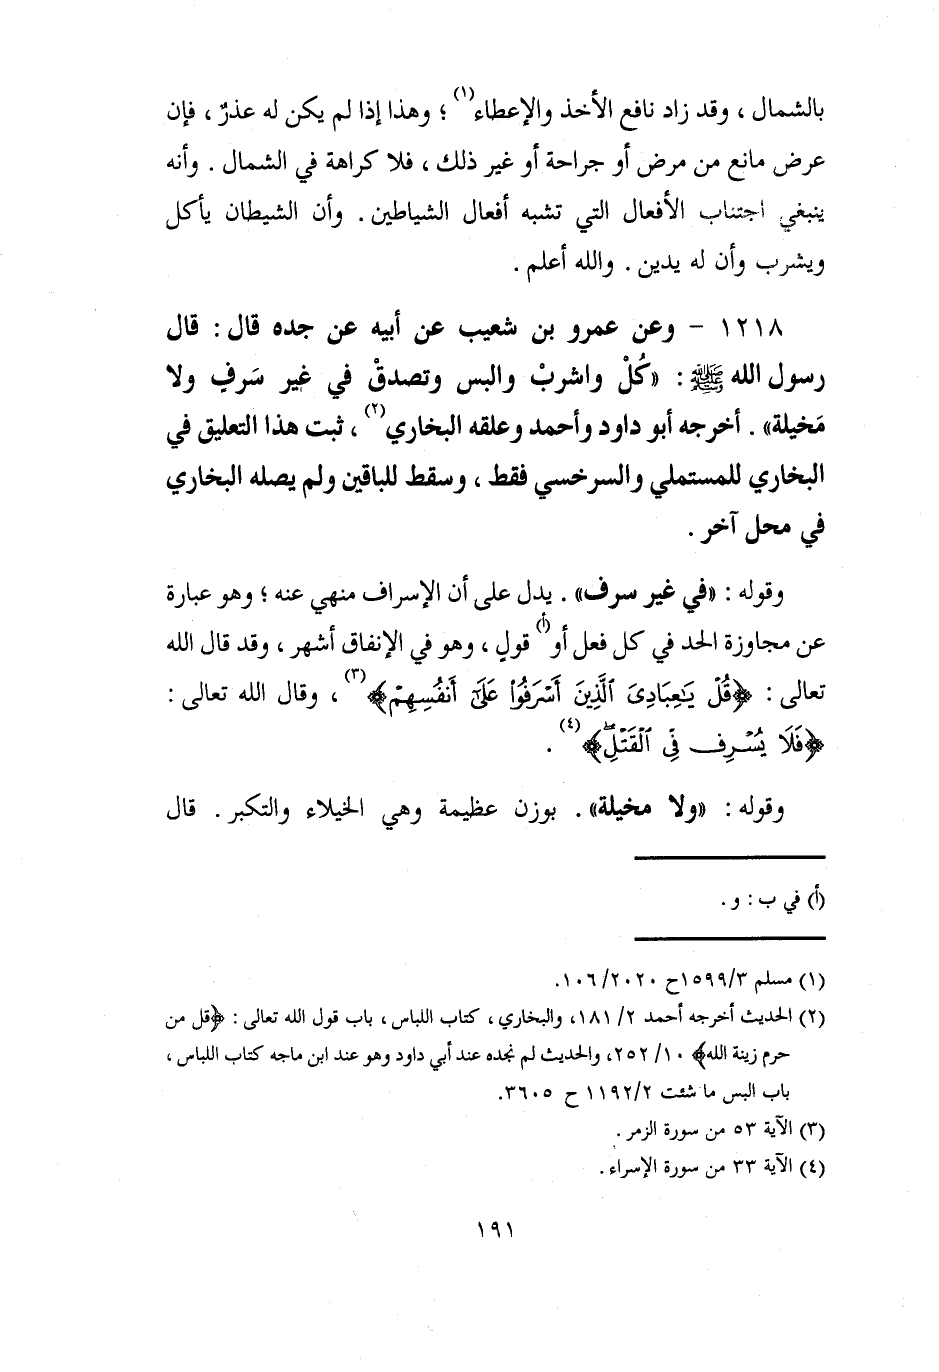 بالشمال ، وقد زاد نافع الأخذ والإعطاء(١) ؛ وهذا إذا لم يكن له عذرٌ ، فإن
عرض مانع من مرض أو جراحة أو غير ذلك ، فلا كراهة في الشمال . وأنه
ينبغي اجتناب الأفعال التي تشبه أفعال الشياطين . وأن الشيطان يأكل
ويشرب وأن له يدين . والله أعلم .
١٢١٨ - وعن عمرو بن شعيب عن أبيه عن جده قال : قال
رسول الله ﷺ : «كُلْ واشربْ والبس وتصدقْ في غير سَرفٍ ولا
مَخيلة» . أخرجه أبو داود وأحمد وعلقه البخاري(٢) ، ثبت هذا التعليق في
البخاري للمستملي والسرخسي فقط ، وسقط للباقين ولم يصله البخاري
في محل آخر .
وقوله : «في غير سرف» . يدل على أن الإسراف منهي عنه ؛ وهو عبارة
عن مجاوزة الحد في كل فعل أو(أ) قولٍ ، وهو في الإنفاق أشهر ، وقد قال الله
تعالى : ﴿قُلْ يَٰعِبَادِىَ ٱلَّذِينَ أَسْرَفُوا۟ عَلَىٰٓ أَنفُسِهِمْ﴾(٣) ، وقال الله تعالى :
﴿فَلَا يُسْرِف فِّى ٱلْقَتْلِۖ﴾(٤) .
وقوله : «ولا مخيلة» . بوزن عظيمة وهي الخيلاء والتكبر . قال
(أ) في ب : و .
(١) مسلم ١٥٩٩/٣ح ١٠٦/٢٠٢٠.
(٢) الحديث أخرجه أحمد ٢/ ١٨١، والبخاري ، كتاب اللباس ، باب قول الله تعالى : ﴿قل من
حرم زينة الله﴾ ١٠/ ٢٥٢، والحديث لم نجده عند أبي داود وهو عند ابن ماجه كتاب اللباس ،
باب البس ما شئت ١١٩٢/٢ ح ٣٦٠٥.
(٣) الآية ٥٣ من سورة الزمر .
(٤) الآية ٣٣ من سورة الإسراء .
١٩١